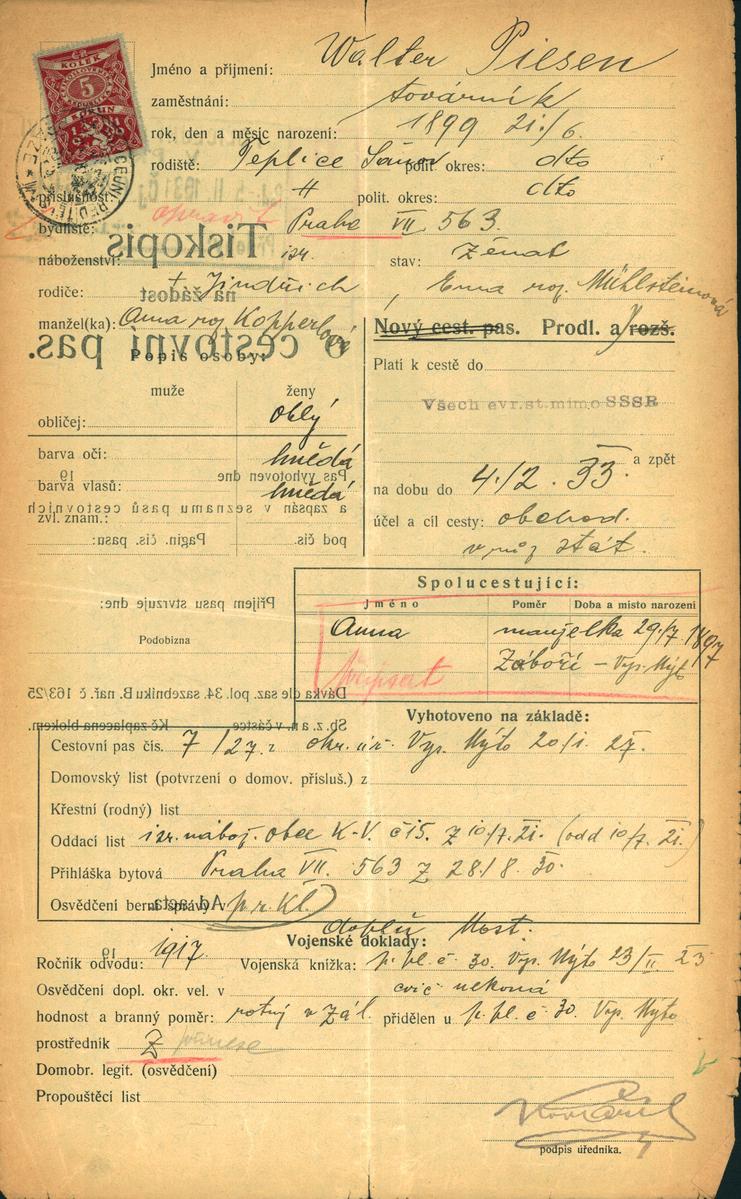 Jméno a příjmení: Walter Piesen
zaměstnání: továrník
rok, den a měsíc narození: 1899 21./6.
rodiště: Teplice Šanov polit. okres: dto
příslušnost: " polit. okres: dto
opravit
bydliště: Praha VII. 563.
náboženství: isr. stav: ženat
rodiče: + Jindřich , Ema roz. Mühlsteinová
manžel(ka): Anna roz Kopperlová
Popis osoby:
muže ženy
obličej: oblý
barva očí: hnědá
barva vlasů: hnědá
zvl. znam.:
Nový cest. pas. Prodl. a rozš.
Platí k cestě do
Všech evr. st. mimo SSSR
a zpět
na dobu do 4./2. 33.
účel a cíl cesty: obchod.
stát.
Spolucestující:
Jméno Poměr Doba a místo narození
Anna manželka 29./7 1897
Záboří – Vys. Mýto
Připsat
Podobizna
Vyhotoveno na základě:
Cestovní pas čís. 7/27. z okr. úř. Vys. Mýto 20/1. 27.
Domovský list (potvrzení o domov. přísluš.) z
Křestní (rodný) list
Oddací list isr. nábož. obce K-V. č 15. z 10/7. 21. (odd 10/7. 21.)
Přihláška bytová Praha VII. 563 z 28./8. 30.
Osvědčení berní správy v pr. Kl.
Vojenské doklady:
doplň Most.
Ročník odvodu: 1917. 19
Vojenská knížka: p. pl. č. 30. Vys. Mýto 23/II 23
Osvědčení dopl. okr. vel. v cvič nekoná
hodnost a branný poměr: rotný v zál. přidělen u p. pl. č 30. Vys. Mýto
prostředník Z
Domobr. legit. (osvědčení)
Propouštěcí list
podpis úředníka.
Tiskopis
na žádost
o cestovní pas.
Pas vyhotoven dne 19
a zapsán v seznamu pasů cestovních
pod čís. Pagin. čís. pasu:
Příjem pasu stvrzuje dne:
Dávka dle saz. pol. 34. sazebníku B. nař. č. 163/25
Sb. z. a n. v částce Kč zaplacena blokem.
Ad acta
KOLEK
5
KORUN